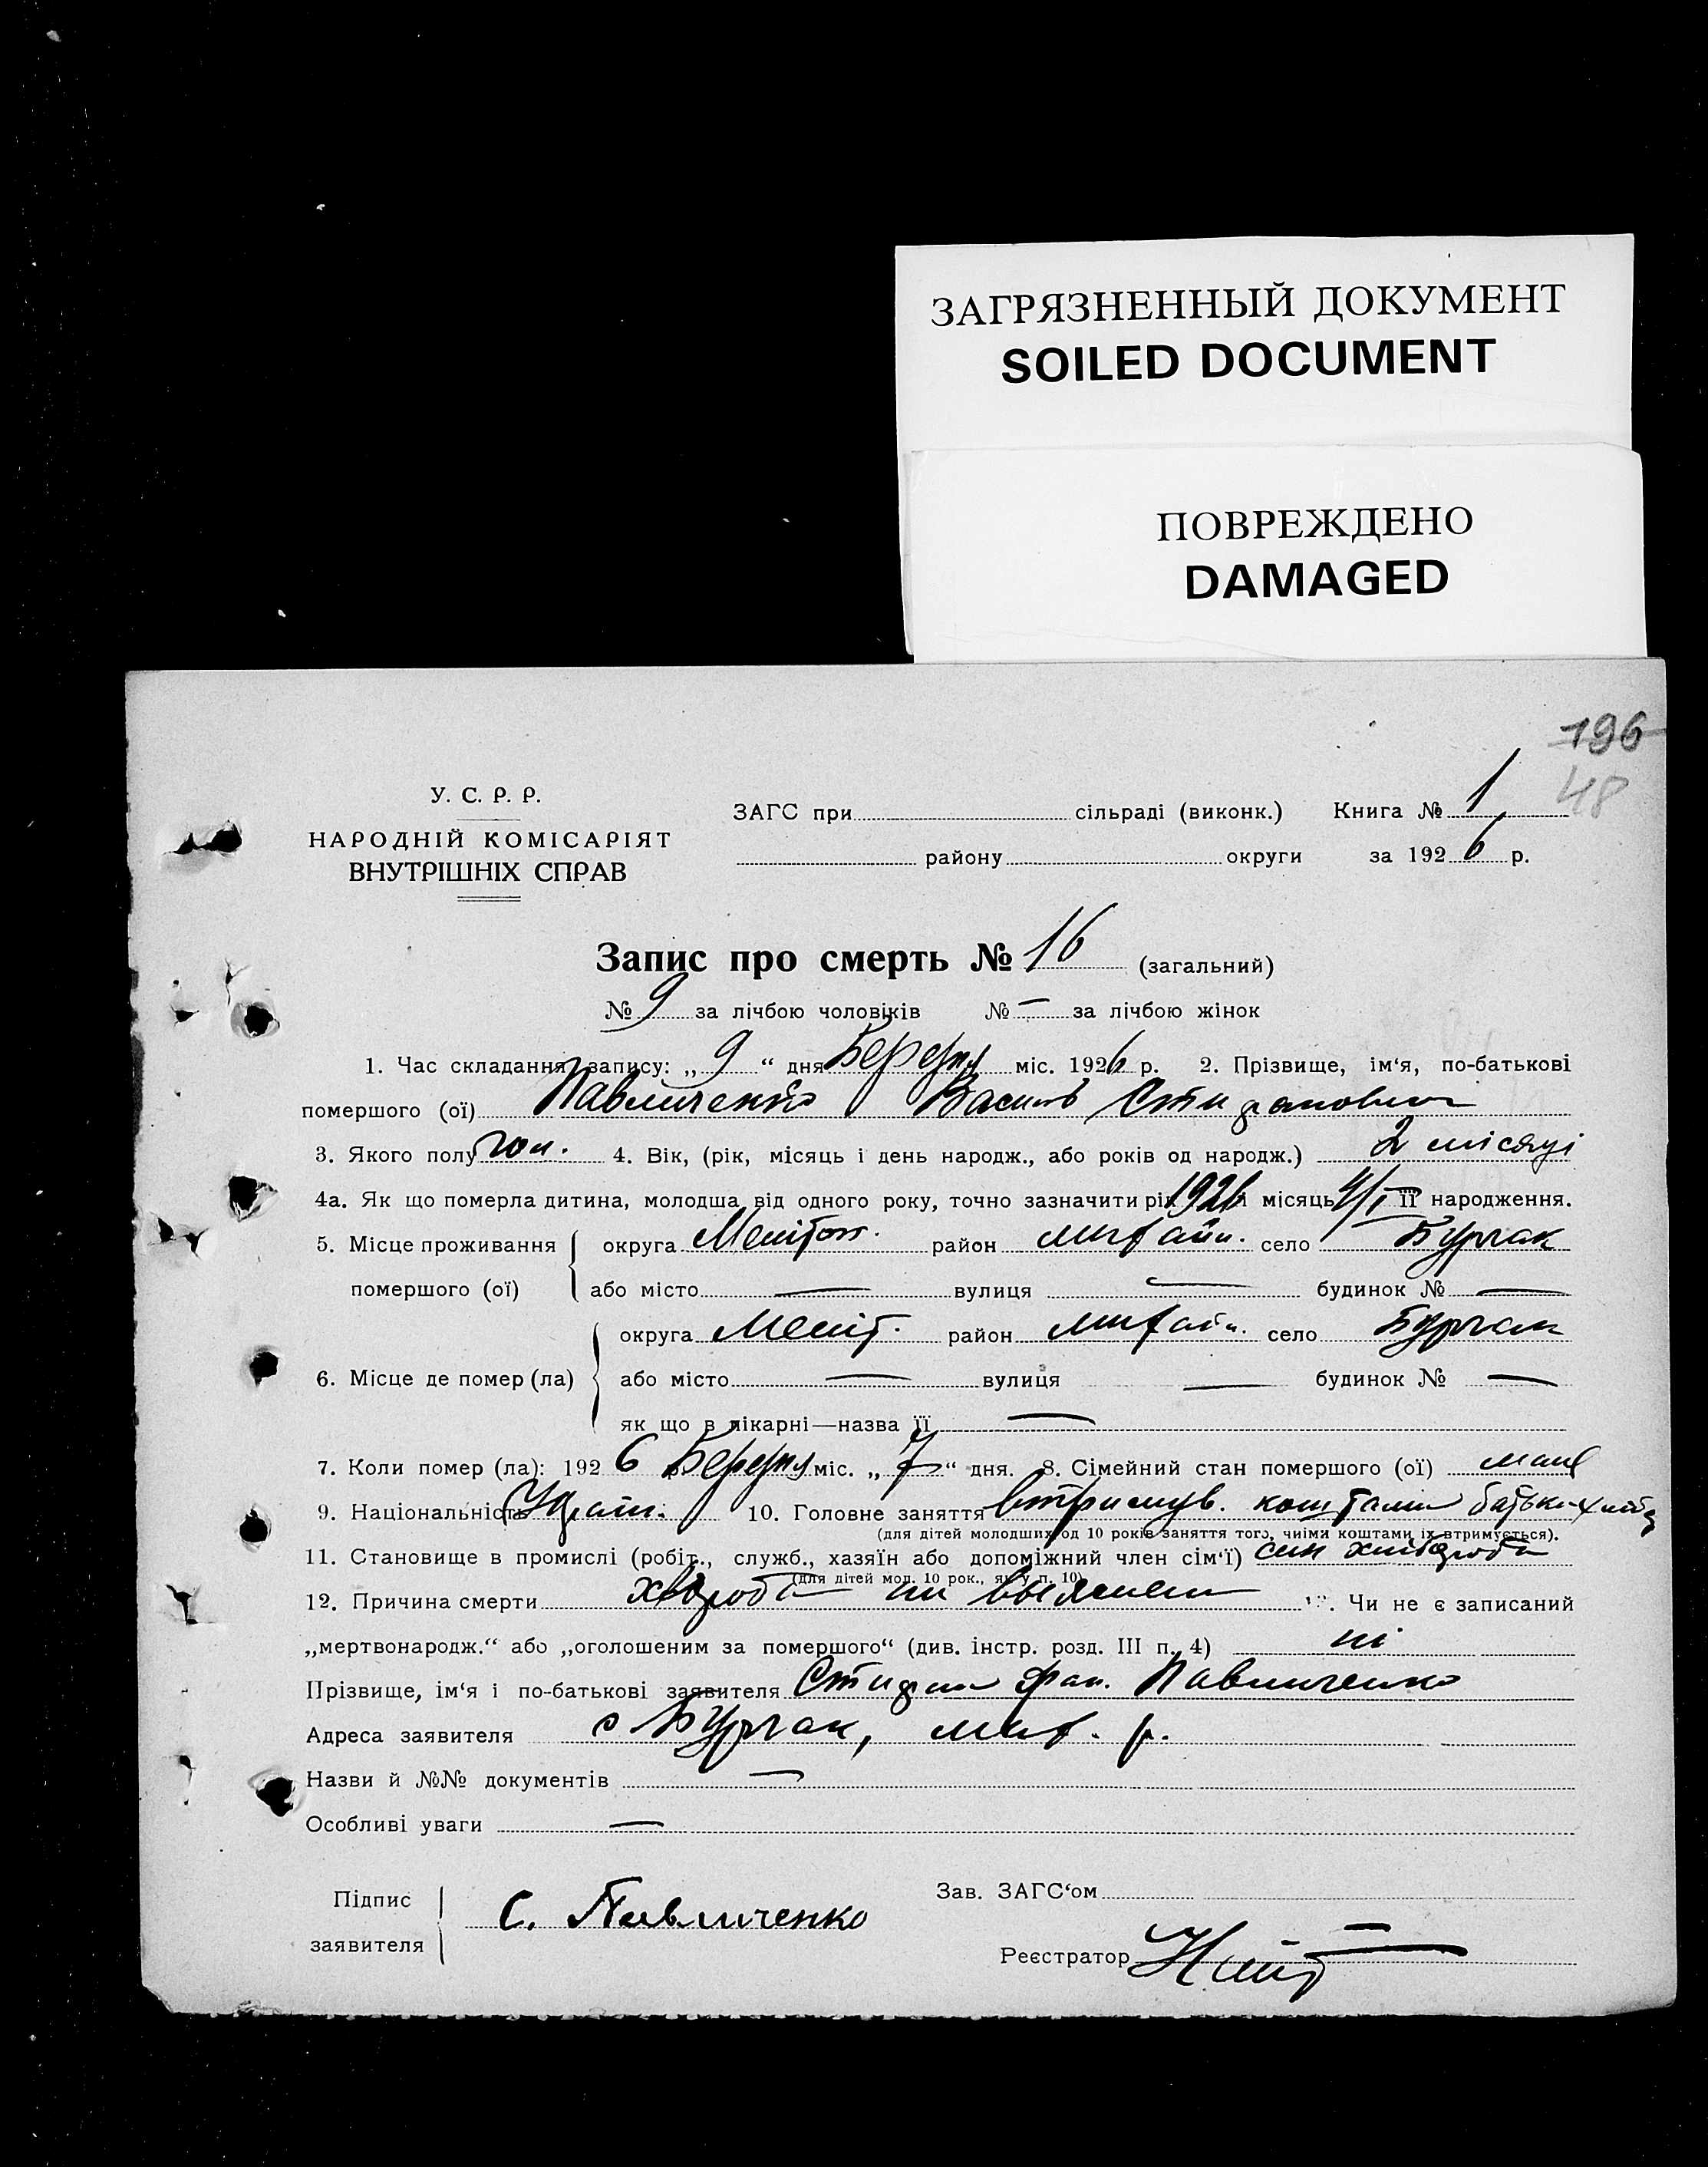 ЗАГРЯЗНЕННЫЙ ДОКУМЕНТ
SOILED DOCUMENT
ПОВРЕЖДЕНО
DAMAGED
196
48
У. С. Р. Р.
НАРОДНІЙ КОМІСАРІЯТ
ВНУТРІШНІХ СПРАВ
ЗАГС при сільраді (виконк.) Книга № 1
району округи за 1926 р.
Запис про смерть № 16 (загальний)
№ 9 за лічбою чоловіків № — за лічбою жінок
1. Час складання запису: „ 9 “ дня Березня міс. 1926 р. 2. Прізвище, ім‘я, по-батькові
померщого (ої) Павличенко Василь Степанович
3. Якого полу чол. 4. Вік, (рік, місяць і день народж., або років од народж.) 2 місяці
4а. Як що померла дитина, молодша від одного року, точно зазначити рік 1926 місяць 4/I її народження.
5. Місце проживання округа Меліт. район село Бурчак
помершого (ої) або місто — вулиця — будинок № —
округа Меліт. район село Бурчак
6. Місце де помер (ла) або місто — вулиця — будинок № —
як що в лікарні—назва її —
7. Коли помер (ла): 1926 Березня міс. „ 7 “ дня. 8. Сімейний стан помершого (ої)
9. Національність Україн. 10. Головне заняття втримув. коштами батька
(для дітей молодших од 10 років заняття того, чиїми коштами їх втримується).
11. Становище в промислі (робіт., служб., хазяїн або допоміжний член сім‘ї) син хлібороба
(для дітей мол. 10 рок., як у п. 10)
12. Причина смерти хвороба не выяснен 13. Чи не є записаний
„мертвонародж.“ або „оголошеним за помершого“ (див. інстр. розд. III п. 4) ні
Прізвище, ім‘я і по-батькові заявителя Степан Павличенко
Адреса заявителя с Бурчак, р.
Назви й №№ документів —
Особливі уваги —
Підпис
заявителя С. Павличенко
Зав. ЗАГС‘ом
Реєстратор